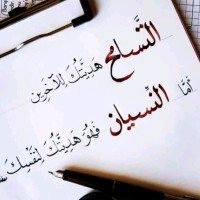 التَّسامح
هَديَّتُكَ لِلآخَرين
أمّا النِّسيان
فَهُوَ هَديَّتُكَ لِنَفْسِكَ